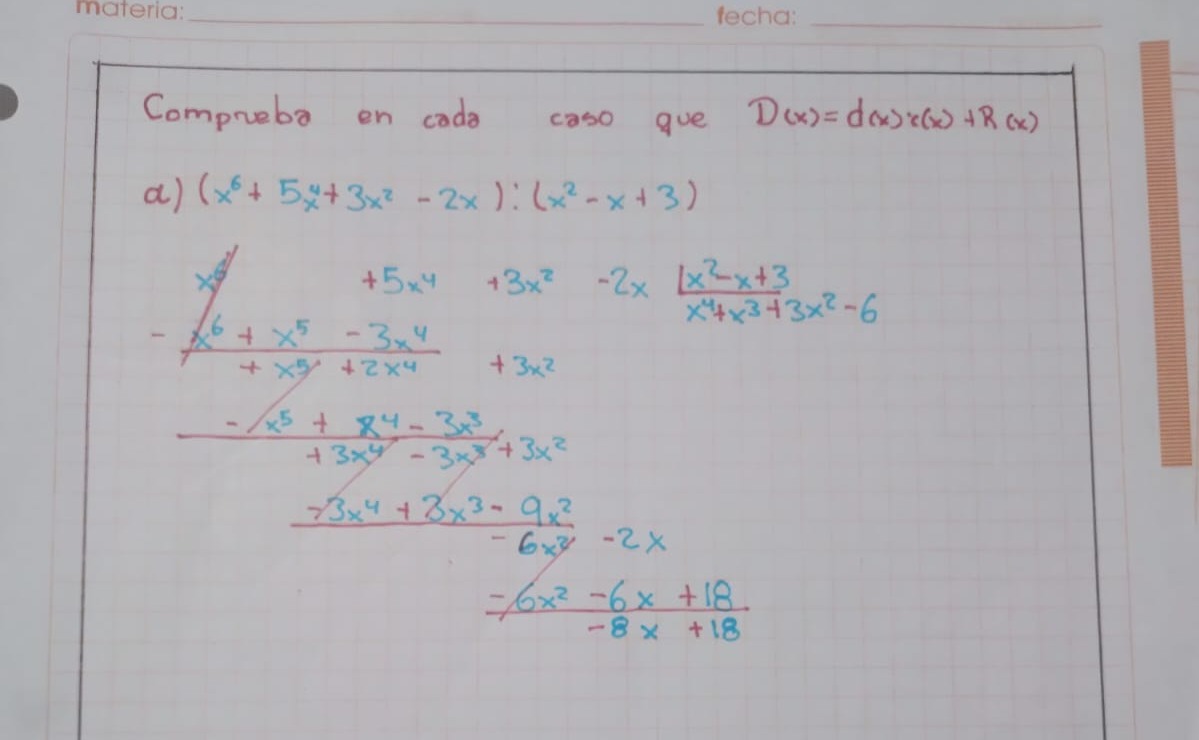 materia: fecha:
Comprueba en cada caso que D(x)=d(x)c(x)+R(x)
a) (x⁶+ 5x⁴+3x² -2x):(x²-x+3)
x⁶ +5x⁴ +3x² -2x |x²-x+3
x⁴+x³+3x²-6
- x⁶ + x⁵ -3x⁴
+ x⁵ +2x⁴ +3x²
- x⁵ + x⁴ - 3x³
+3x⁴ -3x³ +3x²
-3x⁴ +3x³ - 9x²
- 6x² -2x
-6x² -6x +18
-8x +18